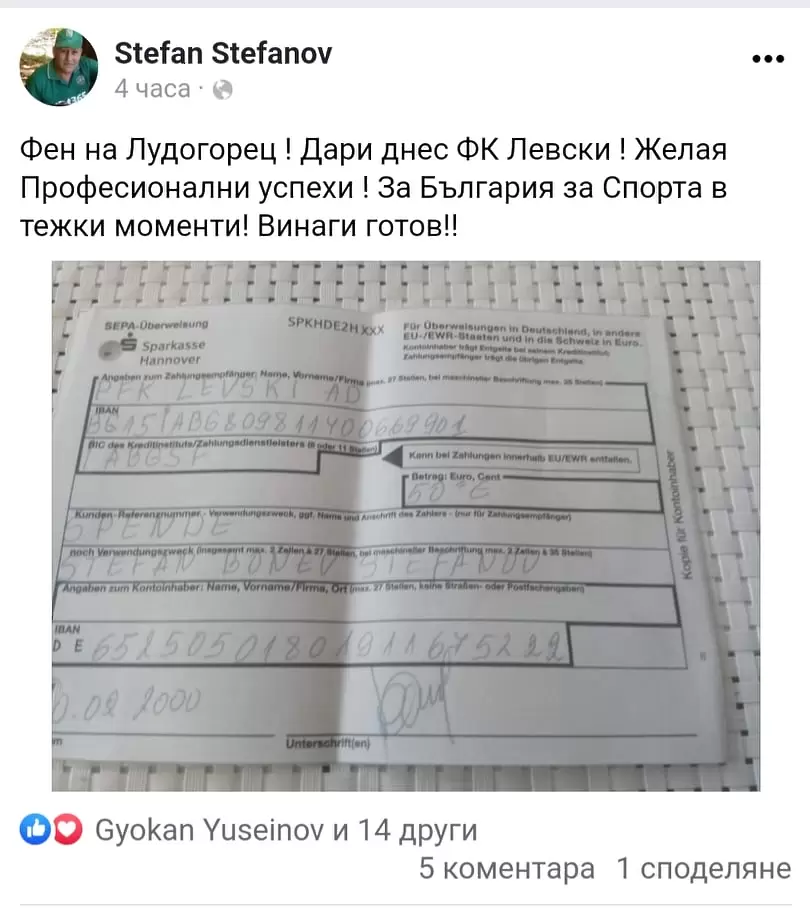 Stefan Stefanov
4 часа
Фен на Лудогорец ! Дари днес ФК Левски ! Желая
Професионални успехи ! За България за Спорта в
тежки моменти! Винаги готов!!
SEPA-Überweisung
SPKHDE2HXXX
Für Überweisungen in Deutschland, in andere
EU-/EWR-Staaten und in die Schweiz in Euro.
Sparkasse
Hannover
Kontoinhaber trägt Entgelte bei seinem Kreditinstitut;
Zahlungsempfänger trägt die übrigen Entgelte.
Angaben zum Zahlungsempfänger: Name, Vorname/Firma (max. 27 Stellen, bei maschineller Beschriftung max. 35 Stellen)
PFK LEVSKI AD
IBAN
BIC des Kreditinstituts/Zahlungsdienstleisters (8 oder 11 Stellen)
Kann bei Zahlungen innerhalb EU/EWR entfallen.
Betrag: Euro, Cent
50 € 
Kunden-Referenznummer - Verwendungszweck, ggf. Name und Anschrift des Zahlers - (nur für Zahlungsempfänger)
SPENDE
noch Verwendungszweck (insgesamt max. 2 Zeilen à 27 Stellen, bei maschineller Beschriftung max. 2 Zeilen à 35 Stellen)
STEFAN BONEV STEFANOV
Angaben zum Kontoinhaber: Name, Vorname/Firma, Ort (max. 27 Stellen, keine Straßen- oder Postfachangaben)
IBAN
DE
.02 2000
Unterschrift(en)
Kopie für Kontoinhaber
Gyokan Yuseinov и 14 други
5 коментара 1 споделяне